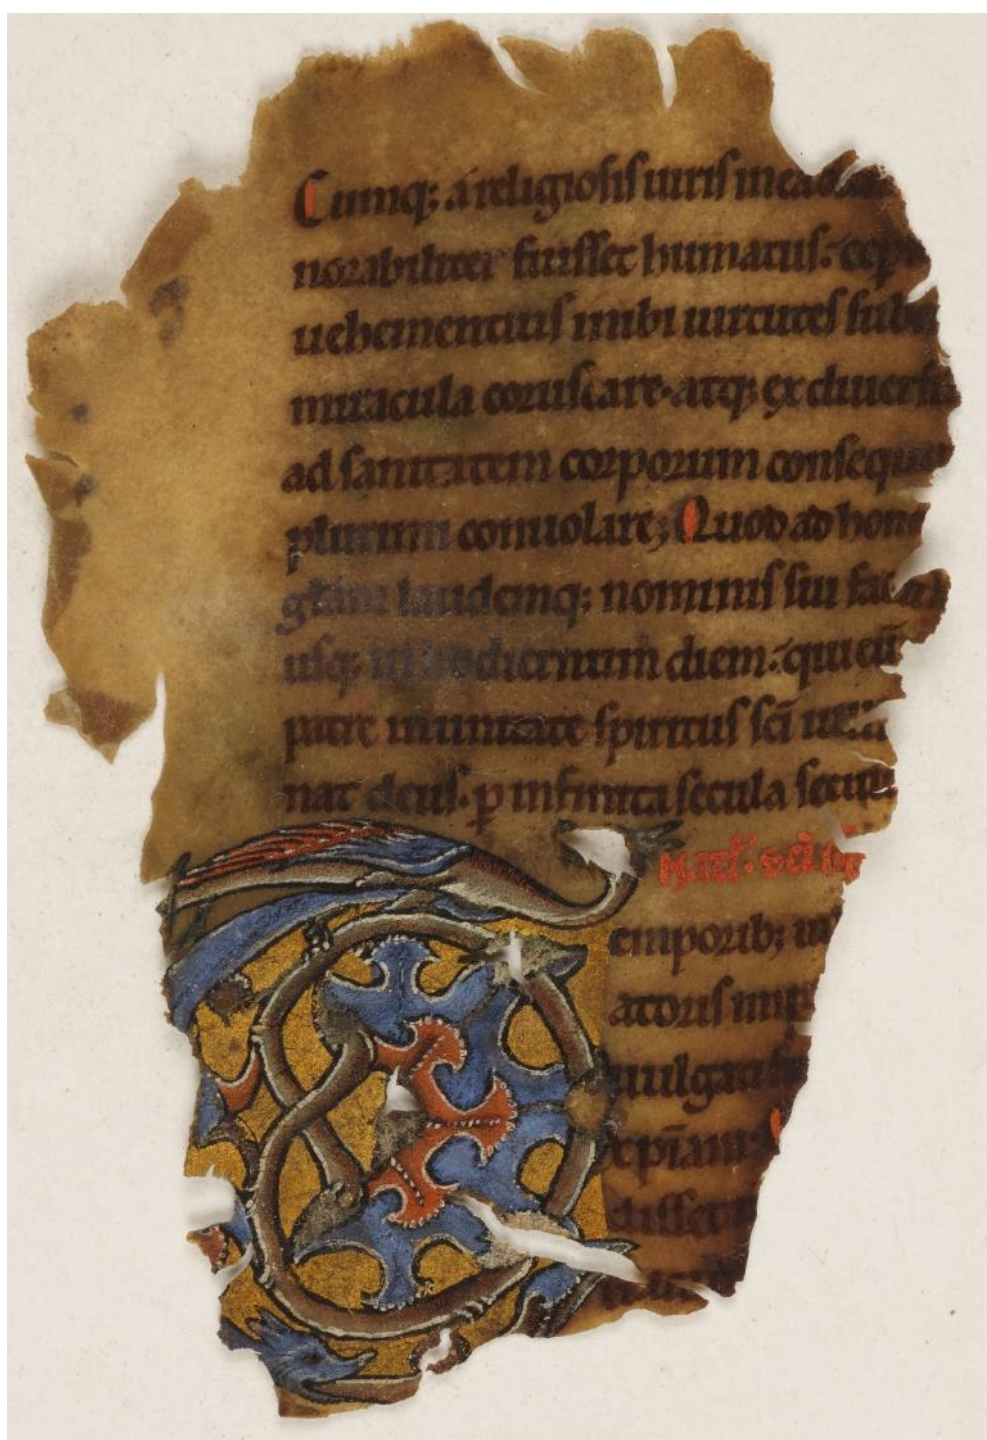 Cumq; a religiosis uiris in ea
norabiliter fuisset humatus: cep
uehementius inibi uirtutes sub
miracula coruscare. atq; ex diuers
ad sanitatem corporum consequ
plurimi conuolare; Quod ad hono
gl̄am laudemq; nominis sui
usq; in hodiernum diem: qui cū
patre in unitate spiritus sc̄i
nat deus. p̱ infinita secula secu
emporib;
atoris imp
iuulgat
xp̄iani
disset